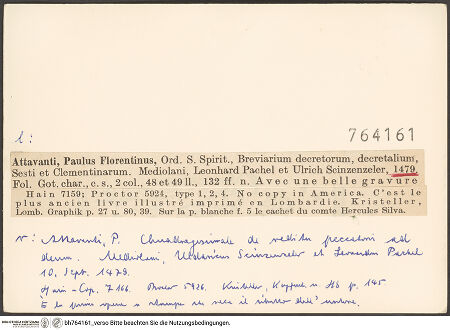 764161
l:
Attavanti, Paulus Florentinus, Ord. S. Spirit., Breviarium decretorum, decretalium,
Sesti et Clementinarum. Mediolani, Leonhard Pachel et Ulrich Scinzenzeler, 1479.
Fol. Got. char., c. s., 2 col., 48 et 49 ll., 132 ff. n. Avec une belle gravure
Hain 7159; Proctor 5924, type 1, 2, 4. No copy in America. C'est le
plus ancien livre illustré imprimé en Lombardie. Kristeller,
Lomb. Graphik p. 27 u. 80, 39. Sur la p. blanche f. 5 le cachet du comte Hercules Silva.
v: Attavanti, P. Quadragesimale de reditu peccatoris ad
deum. Mediolani, Uldericus Scinzenzeler et Leonardus Pachel
10. Sept. 1479.
Hain-Cop. 7166. Proctor 5926. Kristeller, p. 145
E la prima opera
bh764161_verso Bitte beachten Sie die Nutzungsbedingungen.